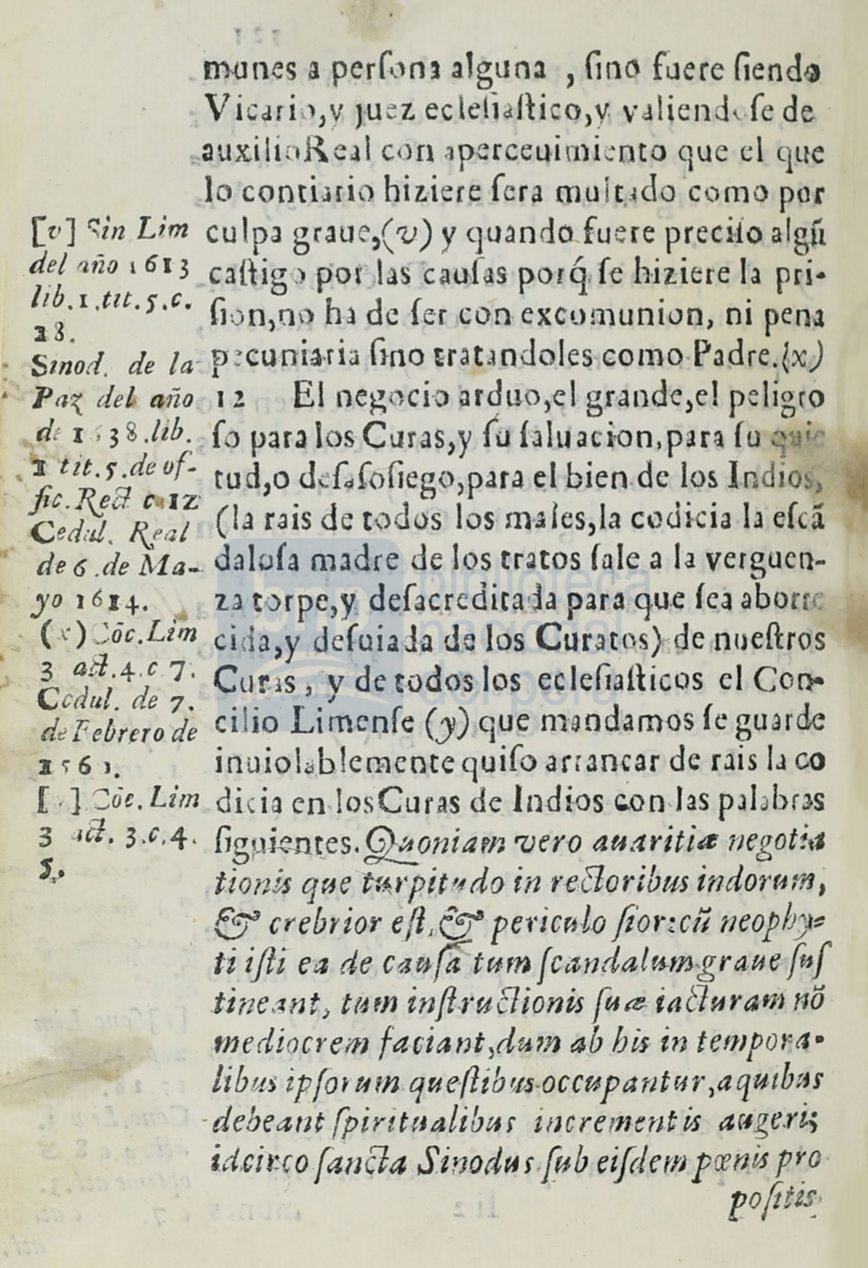 munes a perſona alguna , ſino fuere ſiendo
Vicario,y juez ecleſiaſtico,y valiendoſe de
auxilio Real con aperceuimiento que el que
lo contrario hiziere ſera multado como por
culpa graue,(v) y quando fuere preciſo algũ
caſtigo por las cauſas porq́ ſe hiziere la pri-
ſion,no ha de ſer con excomunion, ni pena
pecuniaria ſino tratandoles como Padre.(x)
12 El negocio arduo,el grande,el peligro
ſo para los Curas,y ſu ſaluacion,para ſu quie
tud,o deſaſoſiego,para el bien de los Indios,
(la rais de todos los males,la codicia la eſcã
daloſa madre de los tratos ſale a la verguen-
za torpe,y deſacreditada para que ſea aborre
cida,y deſuiada de los Curatos) de nueſtros
Curas, y de todos los ecleſiaſticos el Con-
cilio Limenſe (y) que mandamos ſe guarde
inuiolablemente quiſo arrancar de rais la co
dicia en los Curas de Indios con las palabras
ſiguientes. Quoniam vero auaritiæ negotia
tionis que turpitudo in rectoribus indorum,
& crebrior eſt, & periculoſior: cũ neophy-
ti iſti ea de cauſa tum ſcandalum graue ſuſ
tineant, tum inſtructionis ſuæ iacturam nõ
mediocrem faciant,dum ab his in tempora-
libus ipſorum queſtibus occupantur,a quibus
debeant ſpiritualibus incrementis augeri;
idcirco ſancta Sinodus ſub eiſdem pœnis pro
poſitis
[v] Sin Lim
del año 1613
lib.1.tit.5.c.
28.
Sinod. de la
Paz del año
de 1638.lib.
1 tit.5.de of-
fic.Rect c.12
Cedul. Real
de 6.de Ma-
yo 1614.
(x) Cõc.Lim
3 act.4.c 7.
Cedul. de 7.
de Febrero de
156
[ ] Cõc. Lim
3 act. 3.c.4.
5.